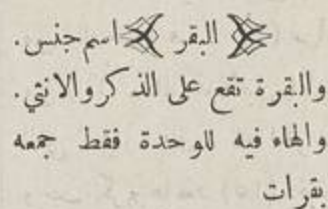 البقر اسم جنس.
والبقرة تقع على الذكر والانثي.
والهاء فيه للوحدة فقط جمعه
بقرات